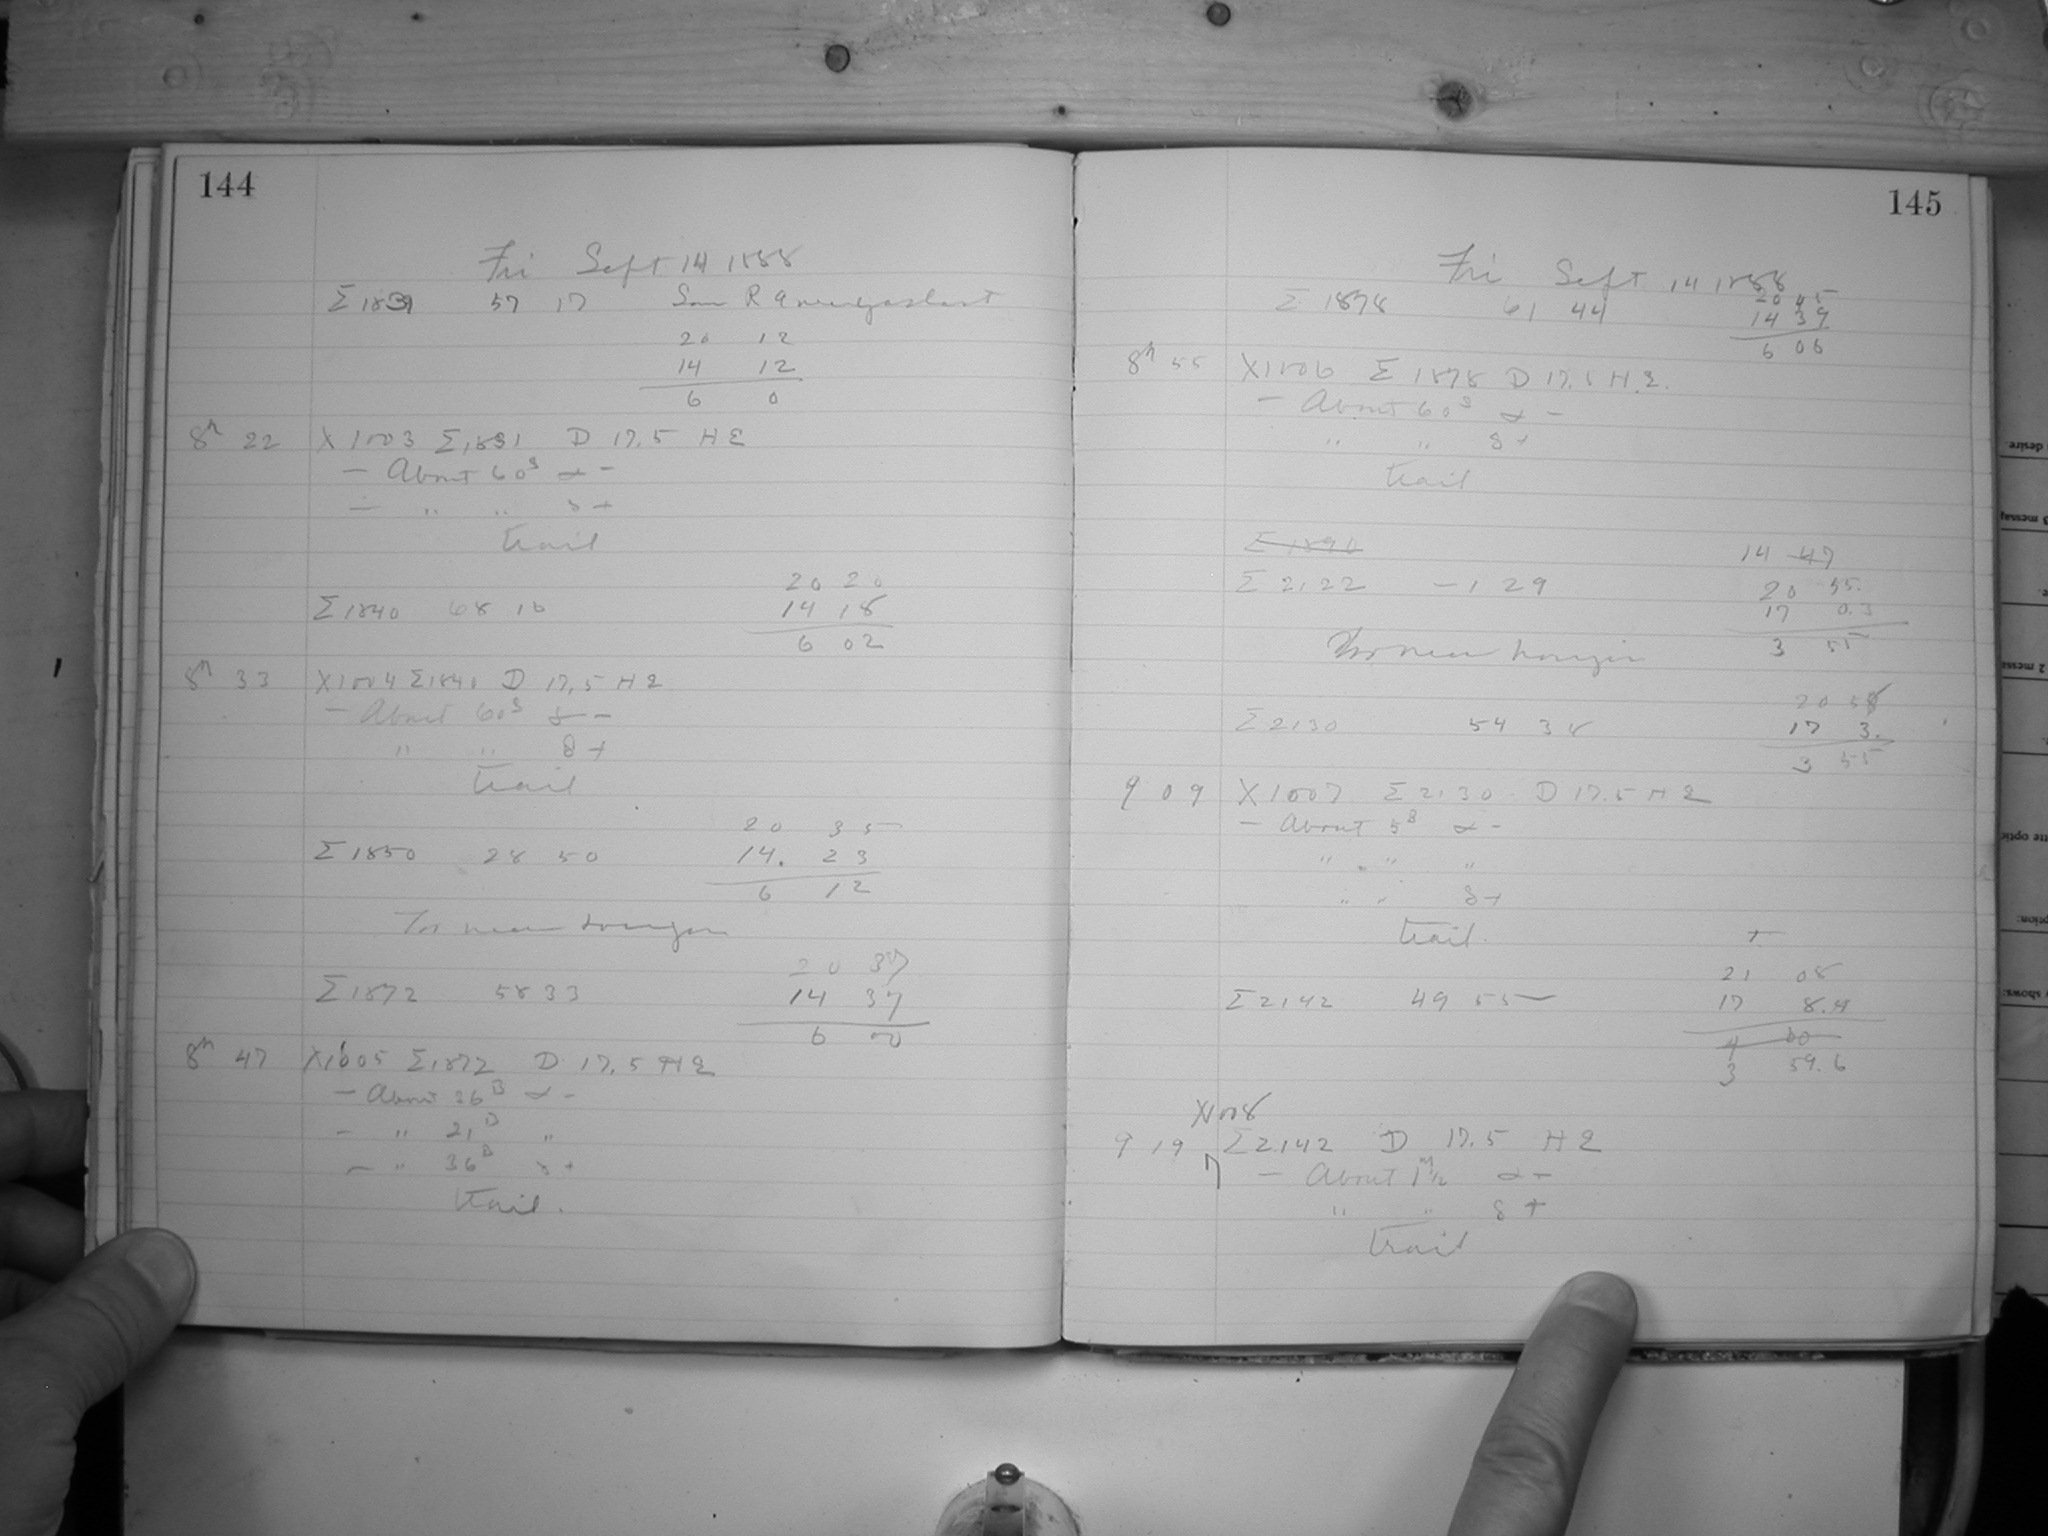 144
Fri Sept 14 1888
Σ 1831 57 17 Sam R A
20 12
14 12
6 0
8h 22 X1003 Σ1831 D 17.5 H Σ
— About 60s α –
— " " δ +
trail
20 20
Σ 1840 68 10 14 18
6 02
8h 33 X1004 Σ1840 D 17.5 H Σ
— About 60s δ –
" " δ +
trail
20 35
Σ 1850 28 50 14. 23
6 12
Too near horizon
20 37
Σ 1872 58 33 14 37
6 00
8h 47 X1005 Σ1872 D 17.5 H Σ
— About 26B α –
— " 21B "
— " 36B δ +
trail.
145
Fri Sept 14 1888
20 45
Σ 1878 61 44 14 39
6 06
8h 55 X1006 Σ 1878 D 17.5 H Σ.
— About 60s α –
" " δ +
trail
Σ 1890 14 47
Σ 2122 –1 29 20 55.
17 0.3
Too near horizon 3 55
20 58
Σ 2130 54 38 17 3.
3 55
9 09 X1007 Σ 2130 D 17.5 H Σ
— About 5B α –
" " "
" " δ +
trail.
21 08
Σ 2142 49 55 17 8.4
4 00
3 59.6
X1008
9 19 Σ 2142 D 17.5 H Σ
— About 1m½ α –
" " δ +
trail